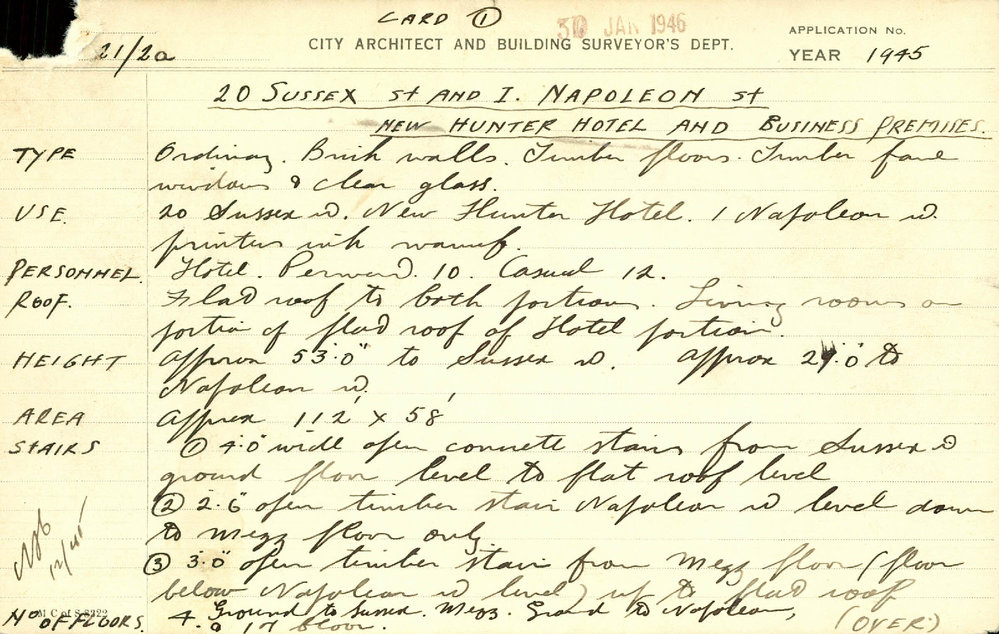 CARD ①
30 JAN 1946
CITY ARCHITECT AND BUILDING SURVEYOR'S DEPT.
APPLICATION No.
YEAR 1945
21/2a
20 SUSSEX St AND 1. NAPOLEON St
NEW HUNTER HOTEL AND BUSINESS PREMISES.
TYPE Ordinary. Brick walls. Timber floors. Timber frame
windows & clear glass.
USE. 20 Sussex St. New Hunter Hotel. 1 Napoleon St.
printers ink manuf.
PERSONNEL. Hotel. Permanent. 10. Casual 12.
ROOF. Flat roof to both portions. Living rooms on
portion of flat roof of Hotel portion.
HEIGHT approx 53'.0" to Sussex St. approx 27'.0" to
Napoleon St.
AREA approx 112' x 58'
STAIRS ① 4'.0" wide open concrete stairs from Sussex St
ground floor level to flat roof level
② 2'.6" open timber stair Napoleon St level down
to Mezz floor only
③ 3'.0" open timber stairs from Mezz floor (floor
below Napoleon St level) up to flat roof
12/45
M C of S 8322
No OF FLOORS. 4. Ground to Sussex. Mezz. Ground to Napoleon,
& 1st floor.
(OVER)